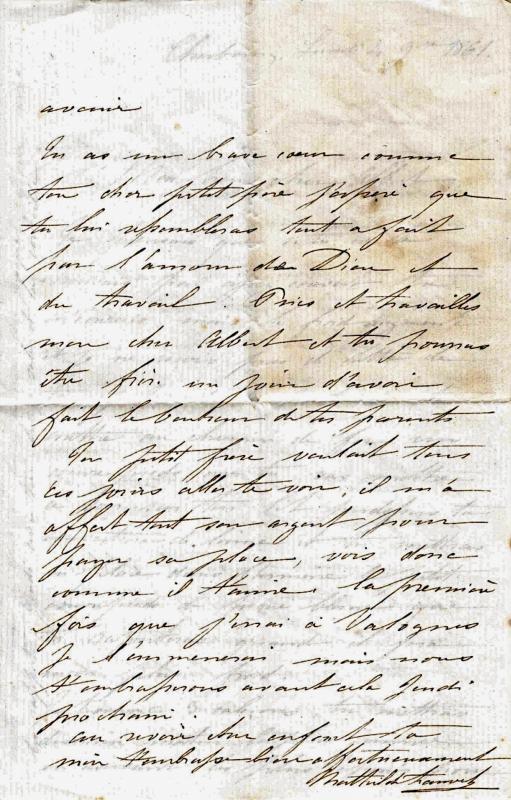 avenir
Tu as un brave cœur comme
ton cher petit père j'espère que
tu lui ressembleras tout a fait
par l'amour de Dieu et
du travail. Pries et travailles
mon cher Albert et tu pourras
être fier un jour d'avoir
fait le bonheur de tes parents
Ton petit frère voulait tous
ces jours aller te voir, il m'a
offert tout son argent pour
payer sa place, vois donc
comme il t'aime. la première
fois que j'irai à Valognes
Je l'emmenerai mais nous
t'embrasserons avant cela Jeudi
prochain
au revoir cher enfant ta
mère t'embrasse bien affectueusement
Mathilde